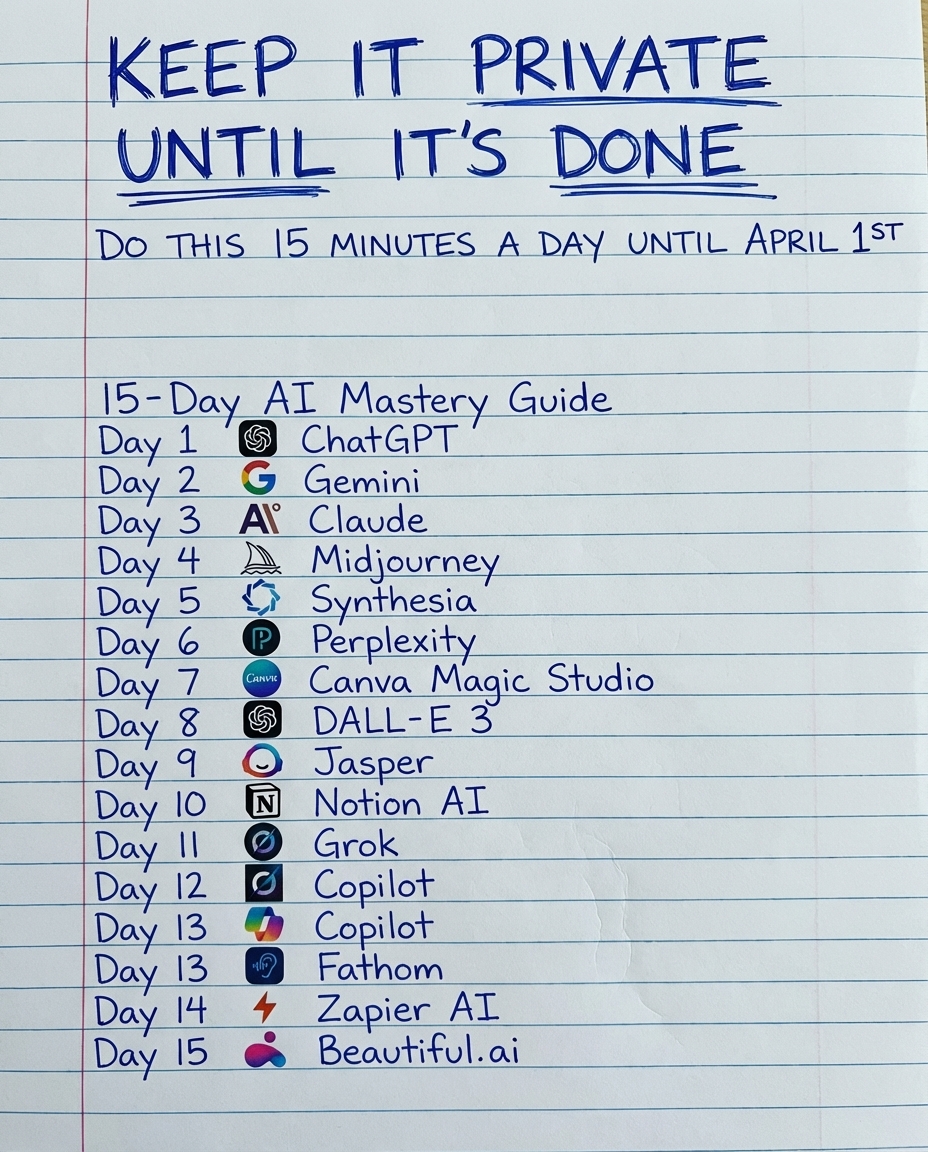 KEEP IT PRIVATE
UNTIL IT'S DONE
DO THIS 15 MINUTES A DAY UNTIL APRIL 1ST
15-Day AI Mastery Guide
Day 1 ChatGPT
Day 2 G Gemini
Day 3 AI Claude
Day 4 Midjourney
Day 5 Synthesia
Day 6 P Perplexity
Day 7 Canva Canva Magic Studio
Day 8 DALL-E 3
Day 9 Jasper
Day 10 N Notion AI
Day 11 Grok
Day 12 Copilot
Day 13 Copilot
Day 13 Fathom
Day 14 Zapier AI
Day 15 Beautiful.ai